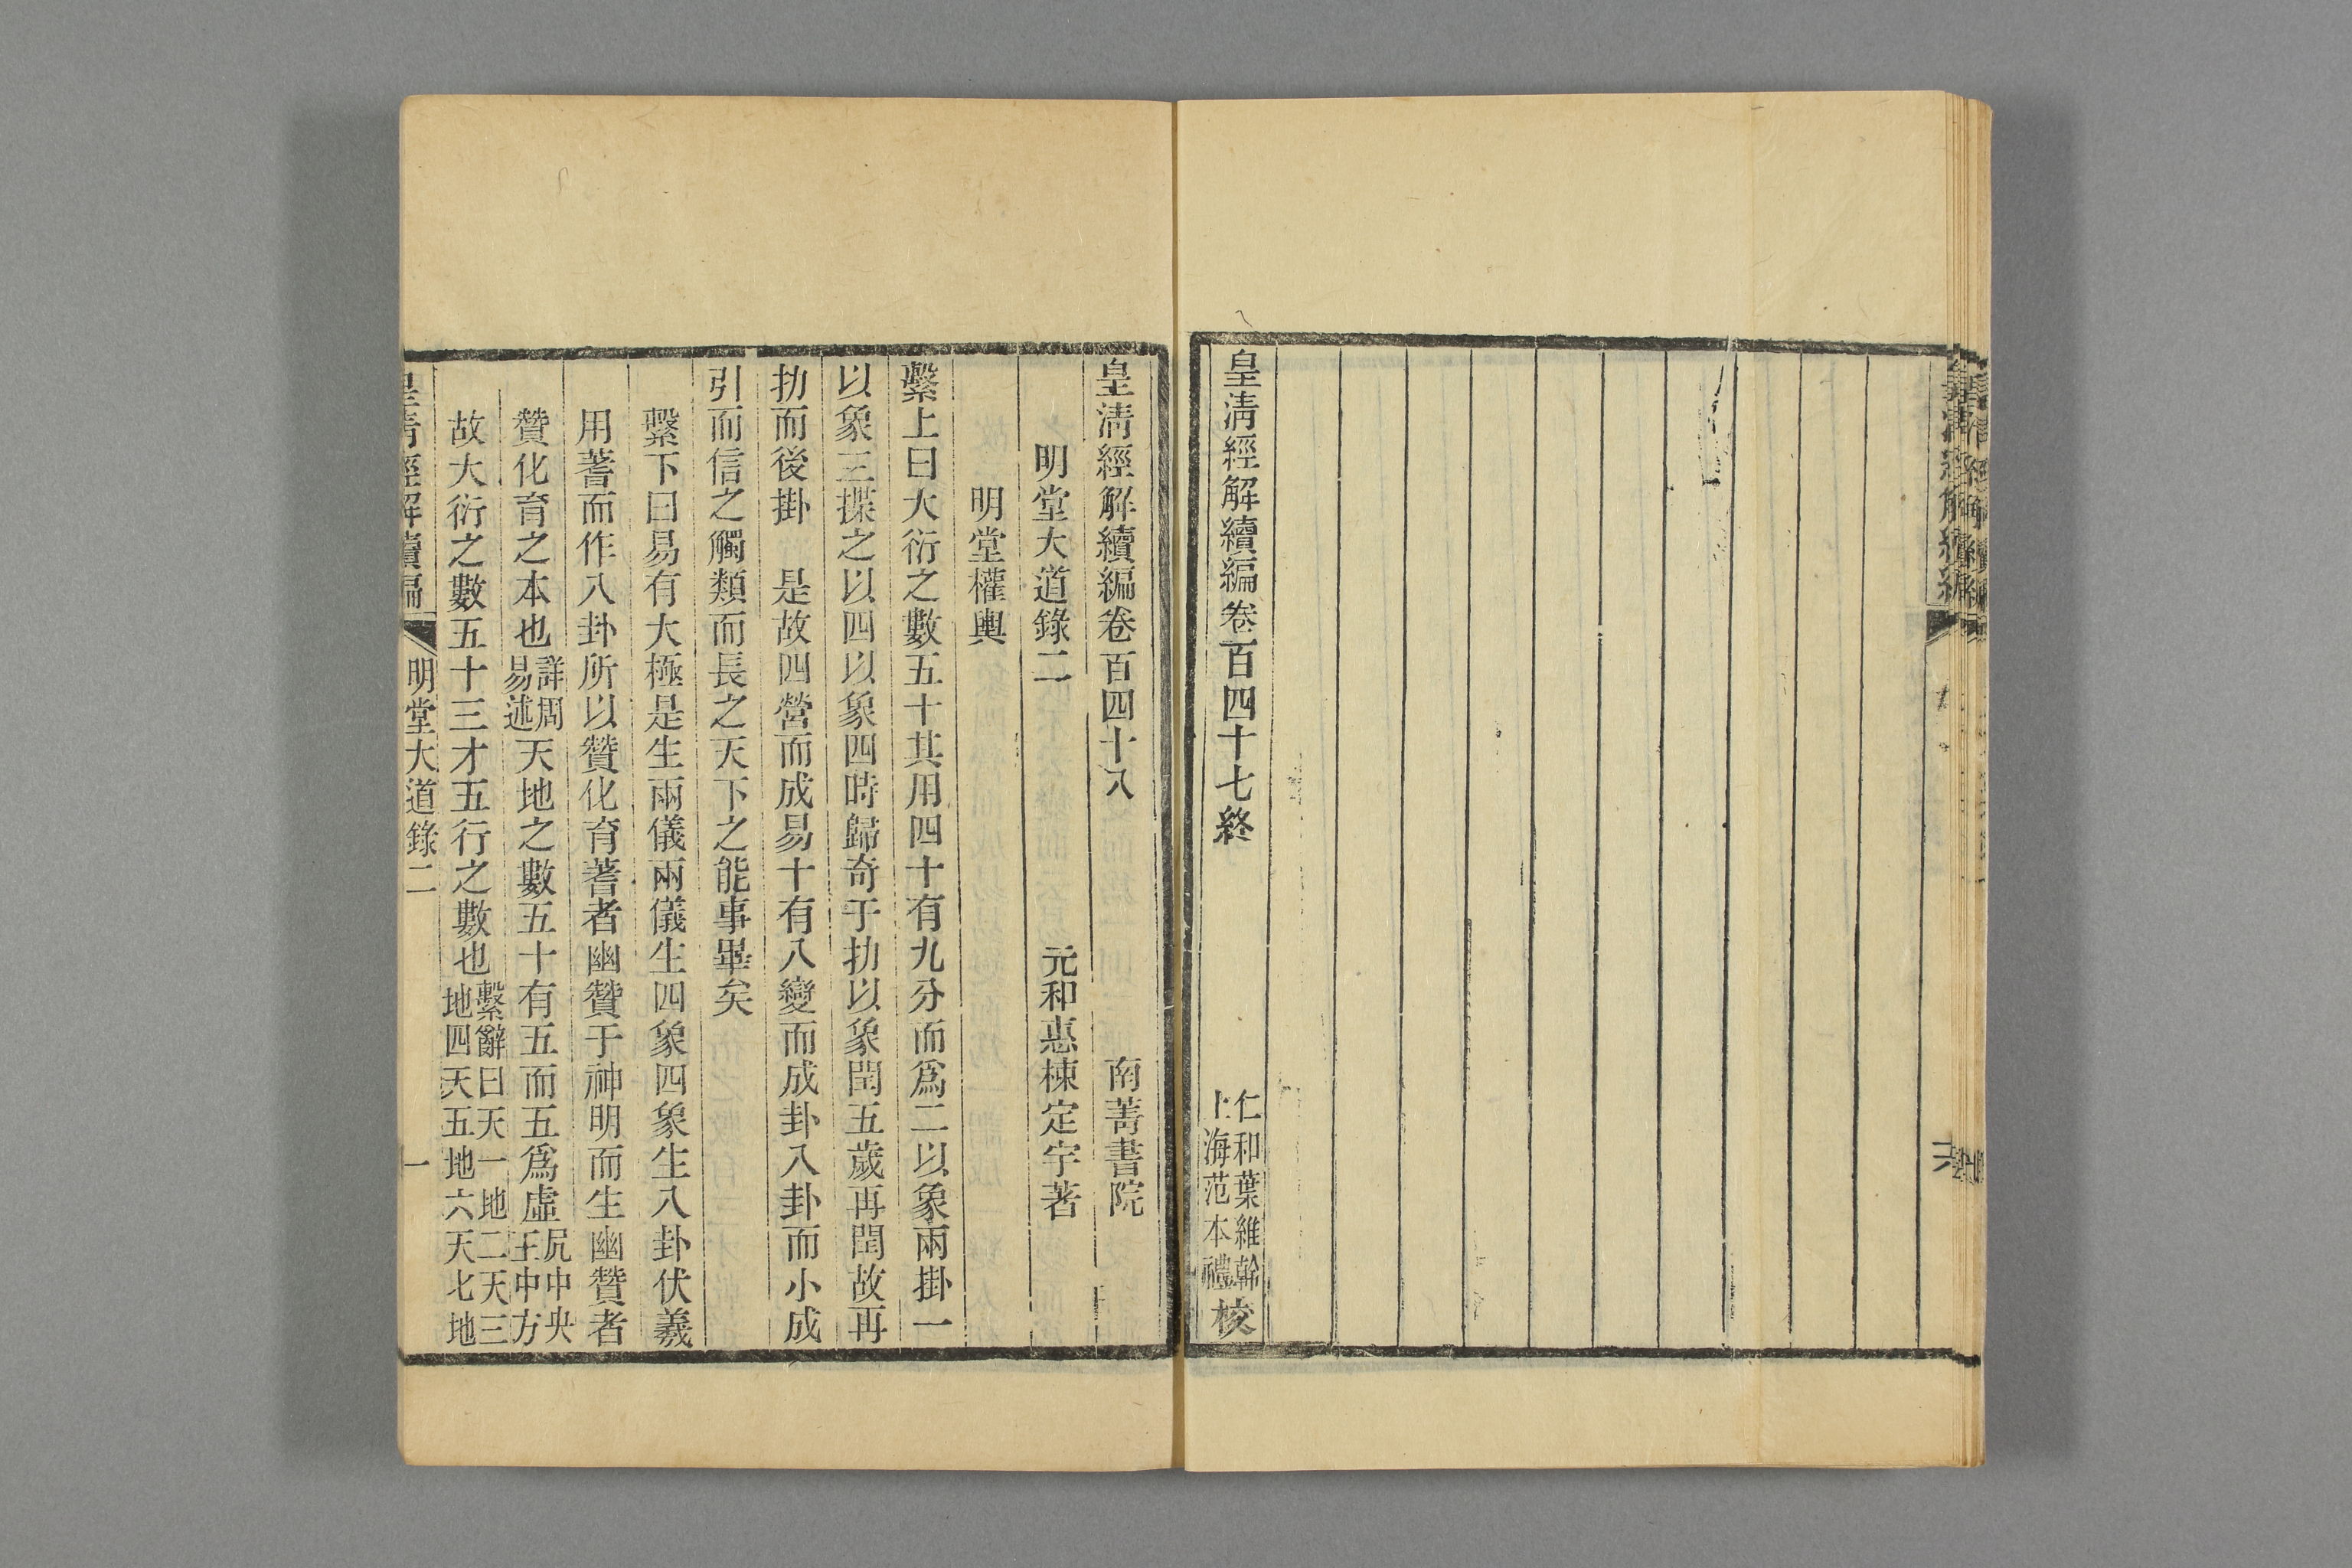 皇清經解續編卷百四十七終
仁和葉維幹
上海范本禮
校
皇清經解續編卷百四十八
南菁書院
明堂大道錄二
元和惠棟定宇著
明堂權輿
繫上曰大衍之數五十其用四十有九分而爲二以象兩掛一
以象三揲之以四以象四時歸奇于扐以象閏五歲再閏故再
扐而後掛 是故四營而成易十有八變而成卦八卦而小成
引而信之觸類而長之天下之能事畢矣
繫下曰易有大極是生兩儀兩儀生四象四象生八卦伏羲
用蓍而作八卦所以贊化育蓍者幽贊于神明而生幽贊者
贊化育之本也詳周易述天地之數五十有五而五爲虛凥中央王中方
故大衍之數五十三才五行之數也繫辭曰天一地二天三地四天五地六天七地
皇清經解續編
明堂大道錄二
一